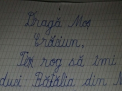 Dragă Moș
Crăciun,
Te rog să îmi
aduci Bătălia din